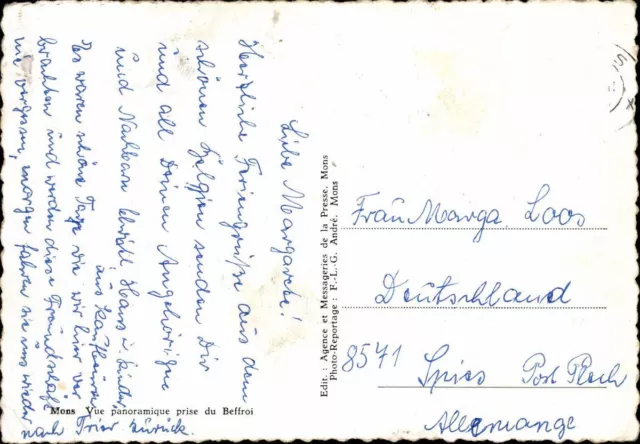 Liebe Margarete!
Herzliche Feriengrüße aus dem
schönen Belgien senden Dir
und all Deinen Angehörigen
und Nachbarn Hans u. Kinder
aus Kaufbeuren
Das waren schöne Tage die wir hier ver
brachten und werden diese Freundschaft
nie vergessen, morgen fahren sie uns wieder
nach Trier zurück.
Mons Vue panoramique prise du Beffroi
Edit. : Agence et Messageries de la Presse, Mons
Photo-Reportage : F.-L.-G. André, Mons
Frau Marga. Loos
Deutschland
8541
Spies Post
Allemange